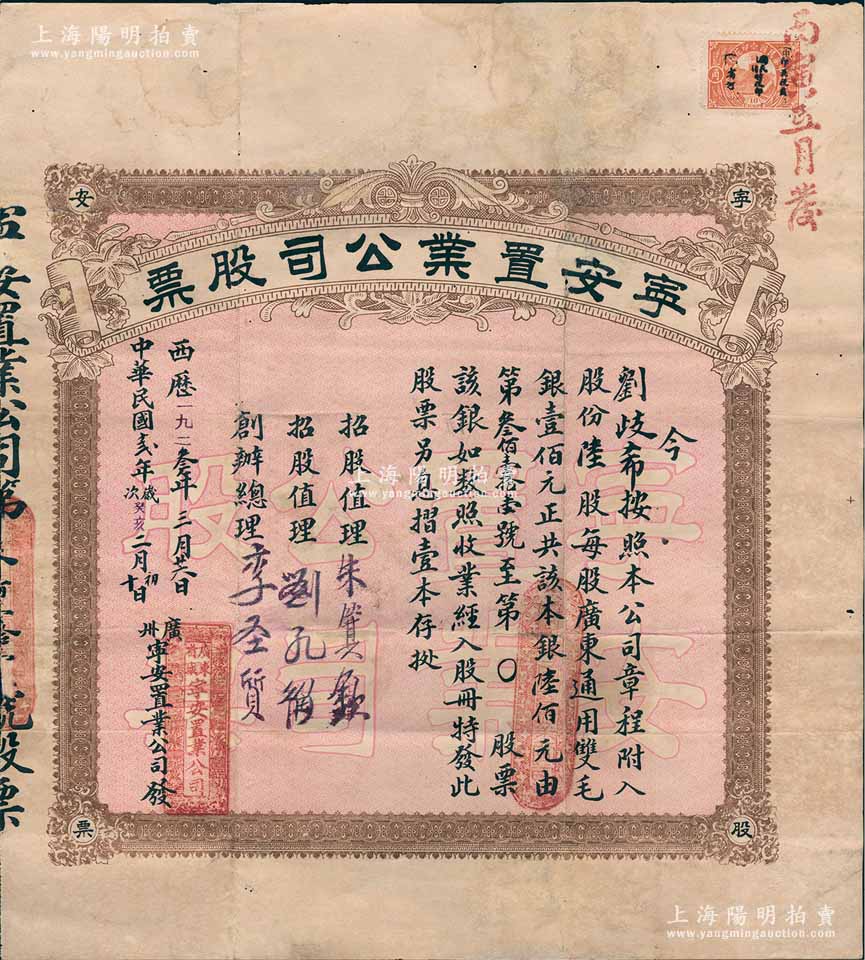 上海陽明拍賣
www.yangmingauction.com
丙寅五月發
寧
安
股
票
寧安置業公司股票
今
劉歧希按照本公司章程附入
股份陸股每股廣東通用雙毛
銀壹佰元正共該本銀陸佰元由
第叁佰壹拾壹號至第〇股票
該銀如數照收業經入股冊特發此
股票另息摺壹本存執
招股值理 朱箕
招股值理 劉孔
創辦總理 李圣質
西歷一九二叁年三月廿六日
中華民國 年歲次癸亥二月初十日
廣州寧安置業公司發
寧安置業公司
安置業公司第
號股票
寧安置業公司
上海陽明拍賣
www.yangmingauction.com
上海陽明拍賣
www.yangmingauction.com